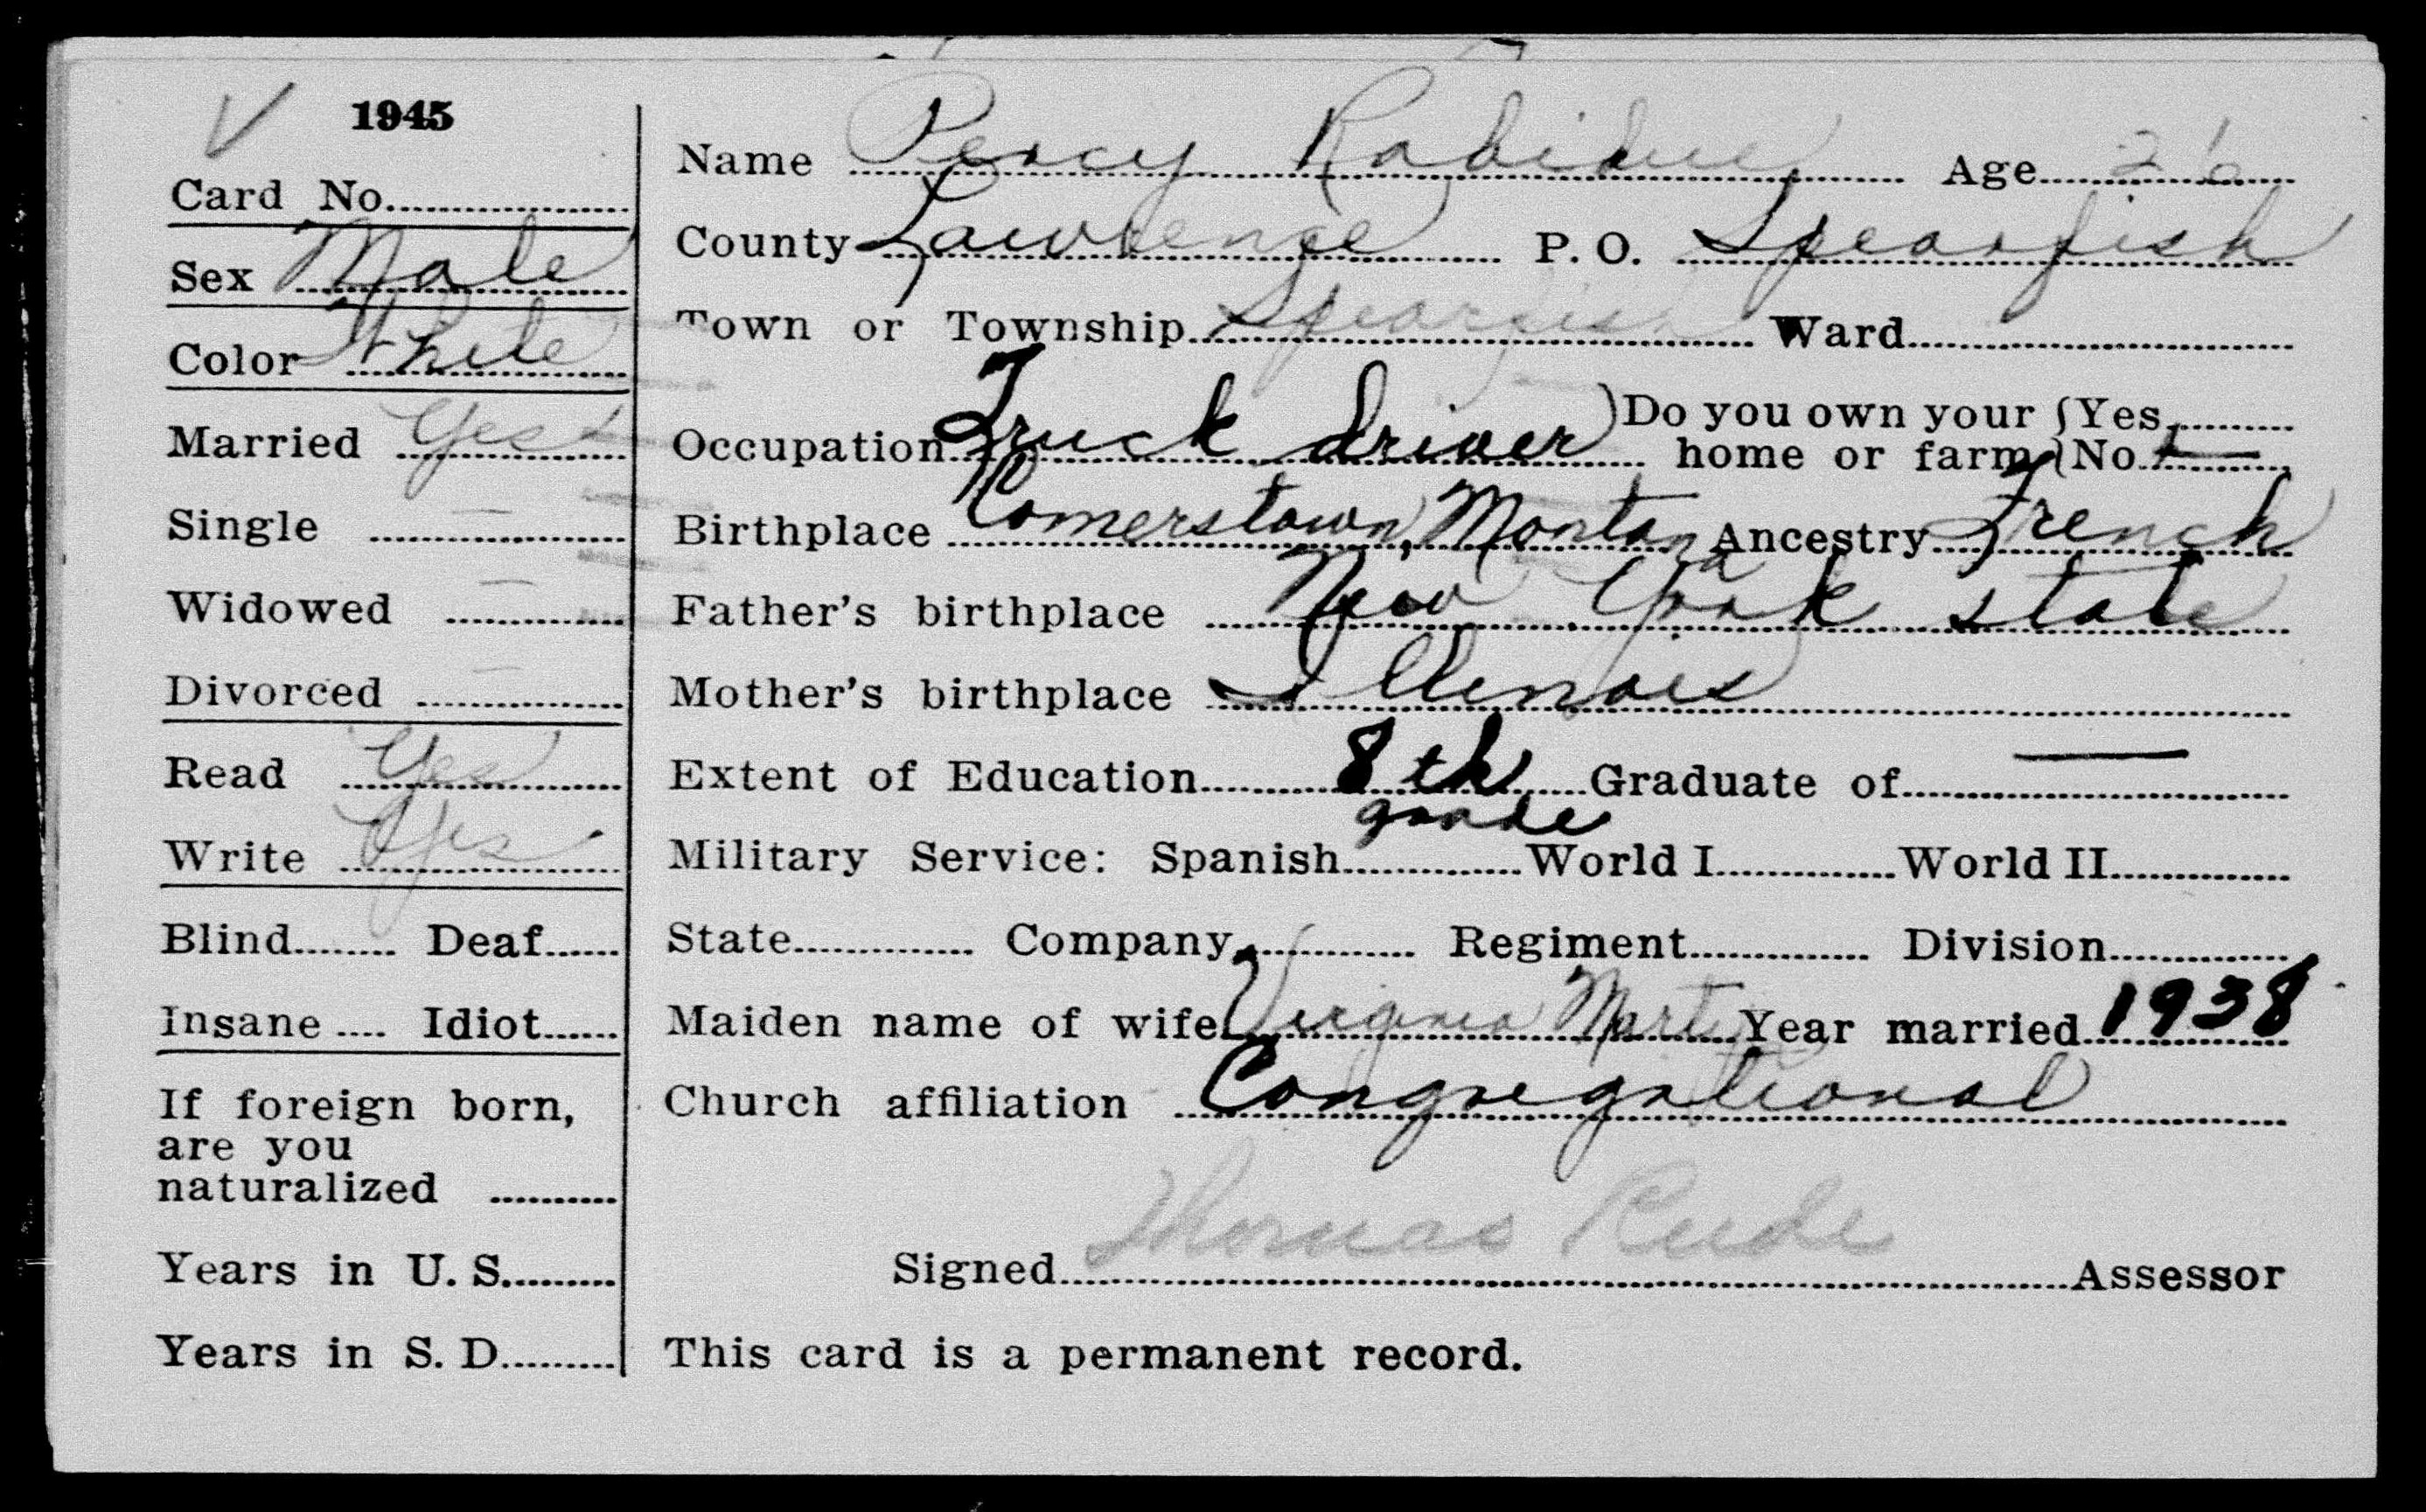 1945
Card No.
Sex Male
Color White
Married Yes
Single —
Widowed —
Divorced —
Read Yes
Write Yes
Blind Deaf
Insane Idiot
If foreign born,
are you
naturalized
Years in U. S.
Years in S. D.
Name Percy Rabidue Age 26
County Lawrence P. O. Spearfish
Town or Township Spearfish Ward
Occupation Truck driver Do you own your home or farm { Yes
No —
Birthplace Comerstown, Montana Ancestry French
Father's birthplace New York state
Mother's birthplace Illinois
Extent of Education 8th grade Graduate of —
Military Service: Spanish World I World II
State Company Regiment Division
Maiden name of wife Virginia Year married 1938
Church affiliation Congregational
Signed Thomas Rude Assessor
This card is a permanent record.